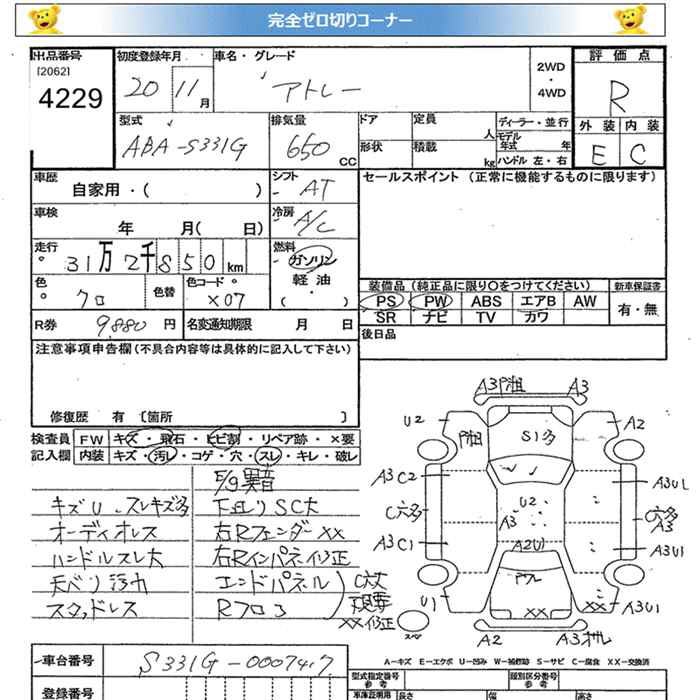 完全ゼロ切りコーナー
出品番号 初度登録年月 車名・グレード 2WD・4WD 評価点
[2062]
4229
20 11月 アトレー R
型式 排気量 ドア 定員 人 ディーラー・並行 外装 内装
ABA-S331G 650 CC 形状 積載 kg モデル年式 年 ハンドル 左・右 E C
車歴 自家用・( ) シフト AT セールスポイント (正常に機能するものに限ります)
車検 年 月( 日) 冷房 A/C
走行 31万2千850km 燃料 ガソリン 軽油・( )
色 クロ 色替 色コード X07 装備品 (純正品に限り○をつけてください) 新車保証書
PS PW ABS エアB AW 有・無
SR ナビ TV カワ
R券 9,880円 名変通知期限 月 日 後日品
注意事項申告欄(不具合内容等は具体的に記入して下さい)
修復歴 有 〔箇所 〕
検査員 FW キズ・飛石・ヒビ割・リペア跡・×要
記入欄 内装 キズ・汚レ・コゲ・穴・スレ・キレ・破レ
E/g異音
キズU、スレキズ多 下廻りSC大
オーディオレス 右Rフェンダーxx
ハンドルスレ大 右Rインパネ修正
天バリ汚れ エンドパネル
スタッドレス Rフロア
C穴大
現要
xx修正
A3 P沮 A3
U2 P沮 S1多 A2
A3C2 U2 A3UL
C穴多 A3 C穴多 A3
A3C1 A2U1 A3U1
U1 xx xx A3U1
スペ A2 A3オサレ
A-キズ E-エクボ U-凹み W-補修跡 S-サビ C-腐食 XX-交換済
車台番号 S331G-0007417
登録番号
型式指定番号 参考 類別区分番号 参考
車庫証明用 長さ 幅 高さ